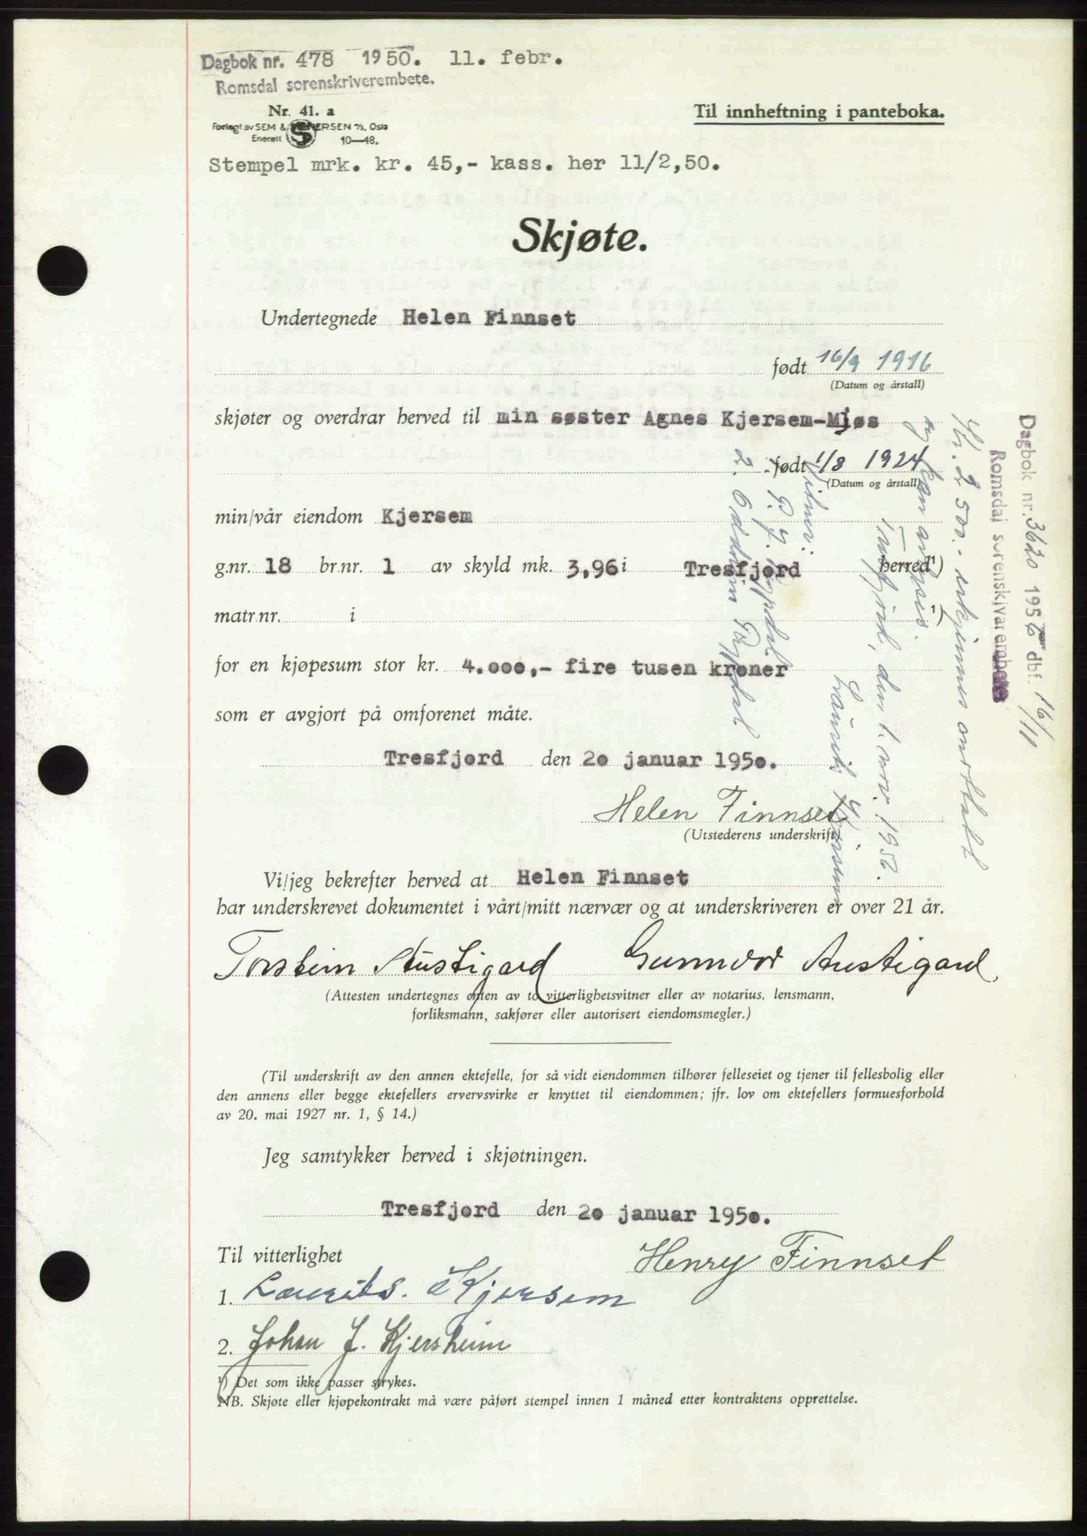 Dagbok nr. 478 1950. 11. febr.
Romsdal sorenskriverembete.
Nr. 41. a
Til innheftning i panteboka.
Forlagt av SEM & STENERSEN A/S, Oslo
Enerett 10—48.
Stempel mrk. kr. 45,- kass. her 11/2,50.
Skjøte.
Undertegnede Helen Finnset
født 16/9 1916
(Datum og årstall)
skjøter og overdrar herved til min søster Agnes Kjersem-Mjøs
født 1/8 1924
(Datum og årstall)
min/vår eiendom Kjersem
g.nr. 18 br.nr. 1 av skyld mk. 3,96 i Tresfjord herred¹)
matr.nr. i ¹)
for en kjøpesum stor kr. 4.000,- fire tusen kroner
som er avgjort på omforenet måte.
Tresfjord den 20 januar 1950.
Helen Finnset
(Utstederens underskrift)
Vi/jeg bekrefter herved at Helen Finnset
har underskrevet dokumentet i vårt/mitt nærvær og at underskriveren er over 21 år.
Torstein Austigard Gunnvor Austigard
(Attesten undertegnes enten av to vitterlighetsvitner eller av notarius, lensmann,
forliksmann, sakfører eller autorisert eiendomsmegler.)
(Til underskrift av den annen ektefelle, for så vidt eiendommen tilhører felleseiet og tjener til fellesbolig eller
den annens eller begge ektefellers ervervsvirke er knyttet til eiendommen; jfr. lov om ektefellers formuesforhold
av 20. mai 1927 nr. 1, § 14.)
Jeg samtykker herved i skjøtningen.
Tresfjord den 20 januar 1950.
Til vitterlighet Henry Finnset
1. Laurits Kjersem
2. Johan J. Kjersheim
¹) Det som ikke passer strykes.
NB. Skjøte eller kjøpekontrakt må være påført stempel innen 1 måned etter kontraktens opprettelse.
Dagbok nr. 3620 1952 dbf. 16/11
Romsdal sorenskriverembete
Kr. 2 500.- erkjennes omtalt
og kan avlyses.
Tresfjord, den 1. nov. 1952.
Laurits Kjersem
Vitner:
1. P. J. Rypdal
2. Oddrun Rypdal